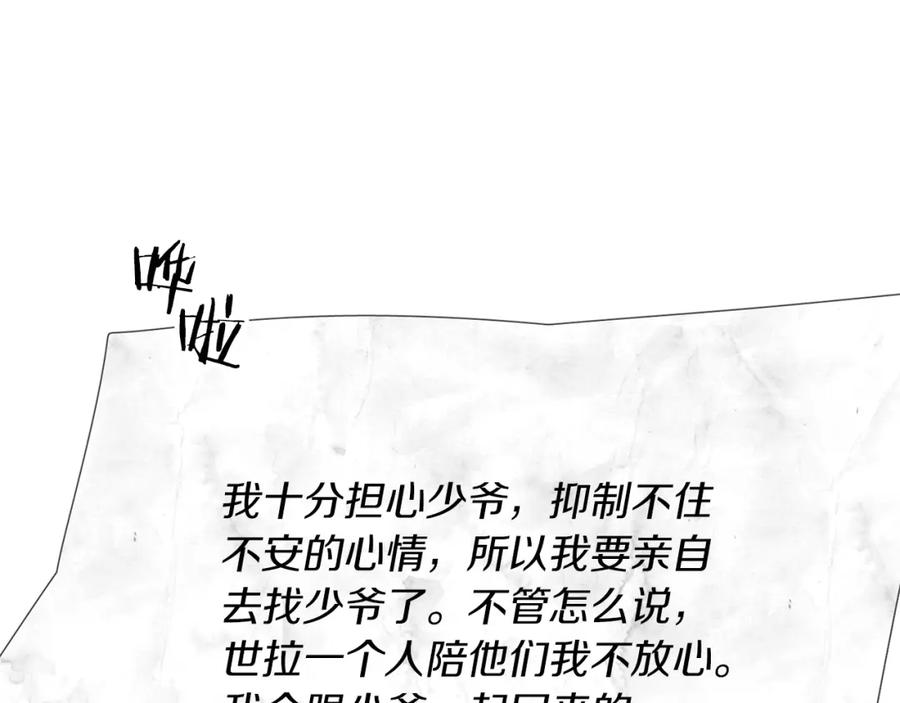 哗
啦
我十分担心少爷，抑制不住
不安的心情，所以我要亲自
去找少爷了。不管怎么说，
世拉一个人陪他们我不放心。
我会跟少爷一起回来的